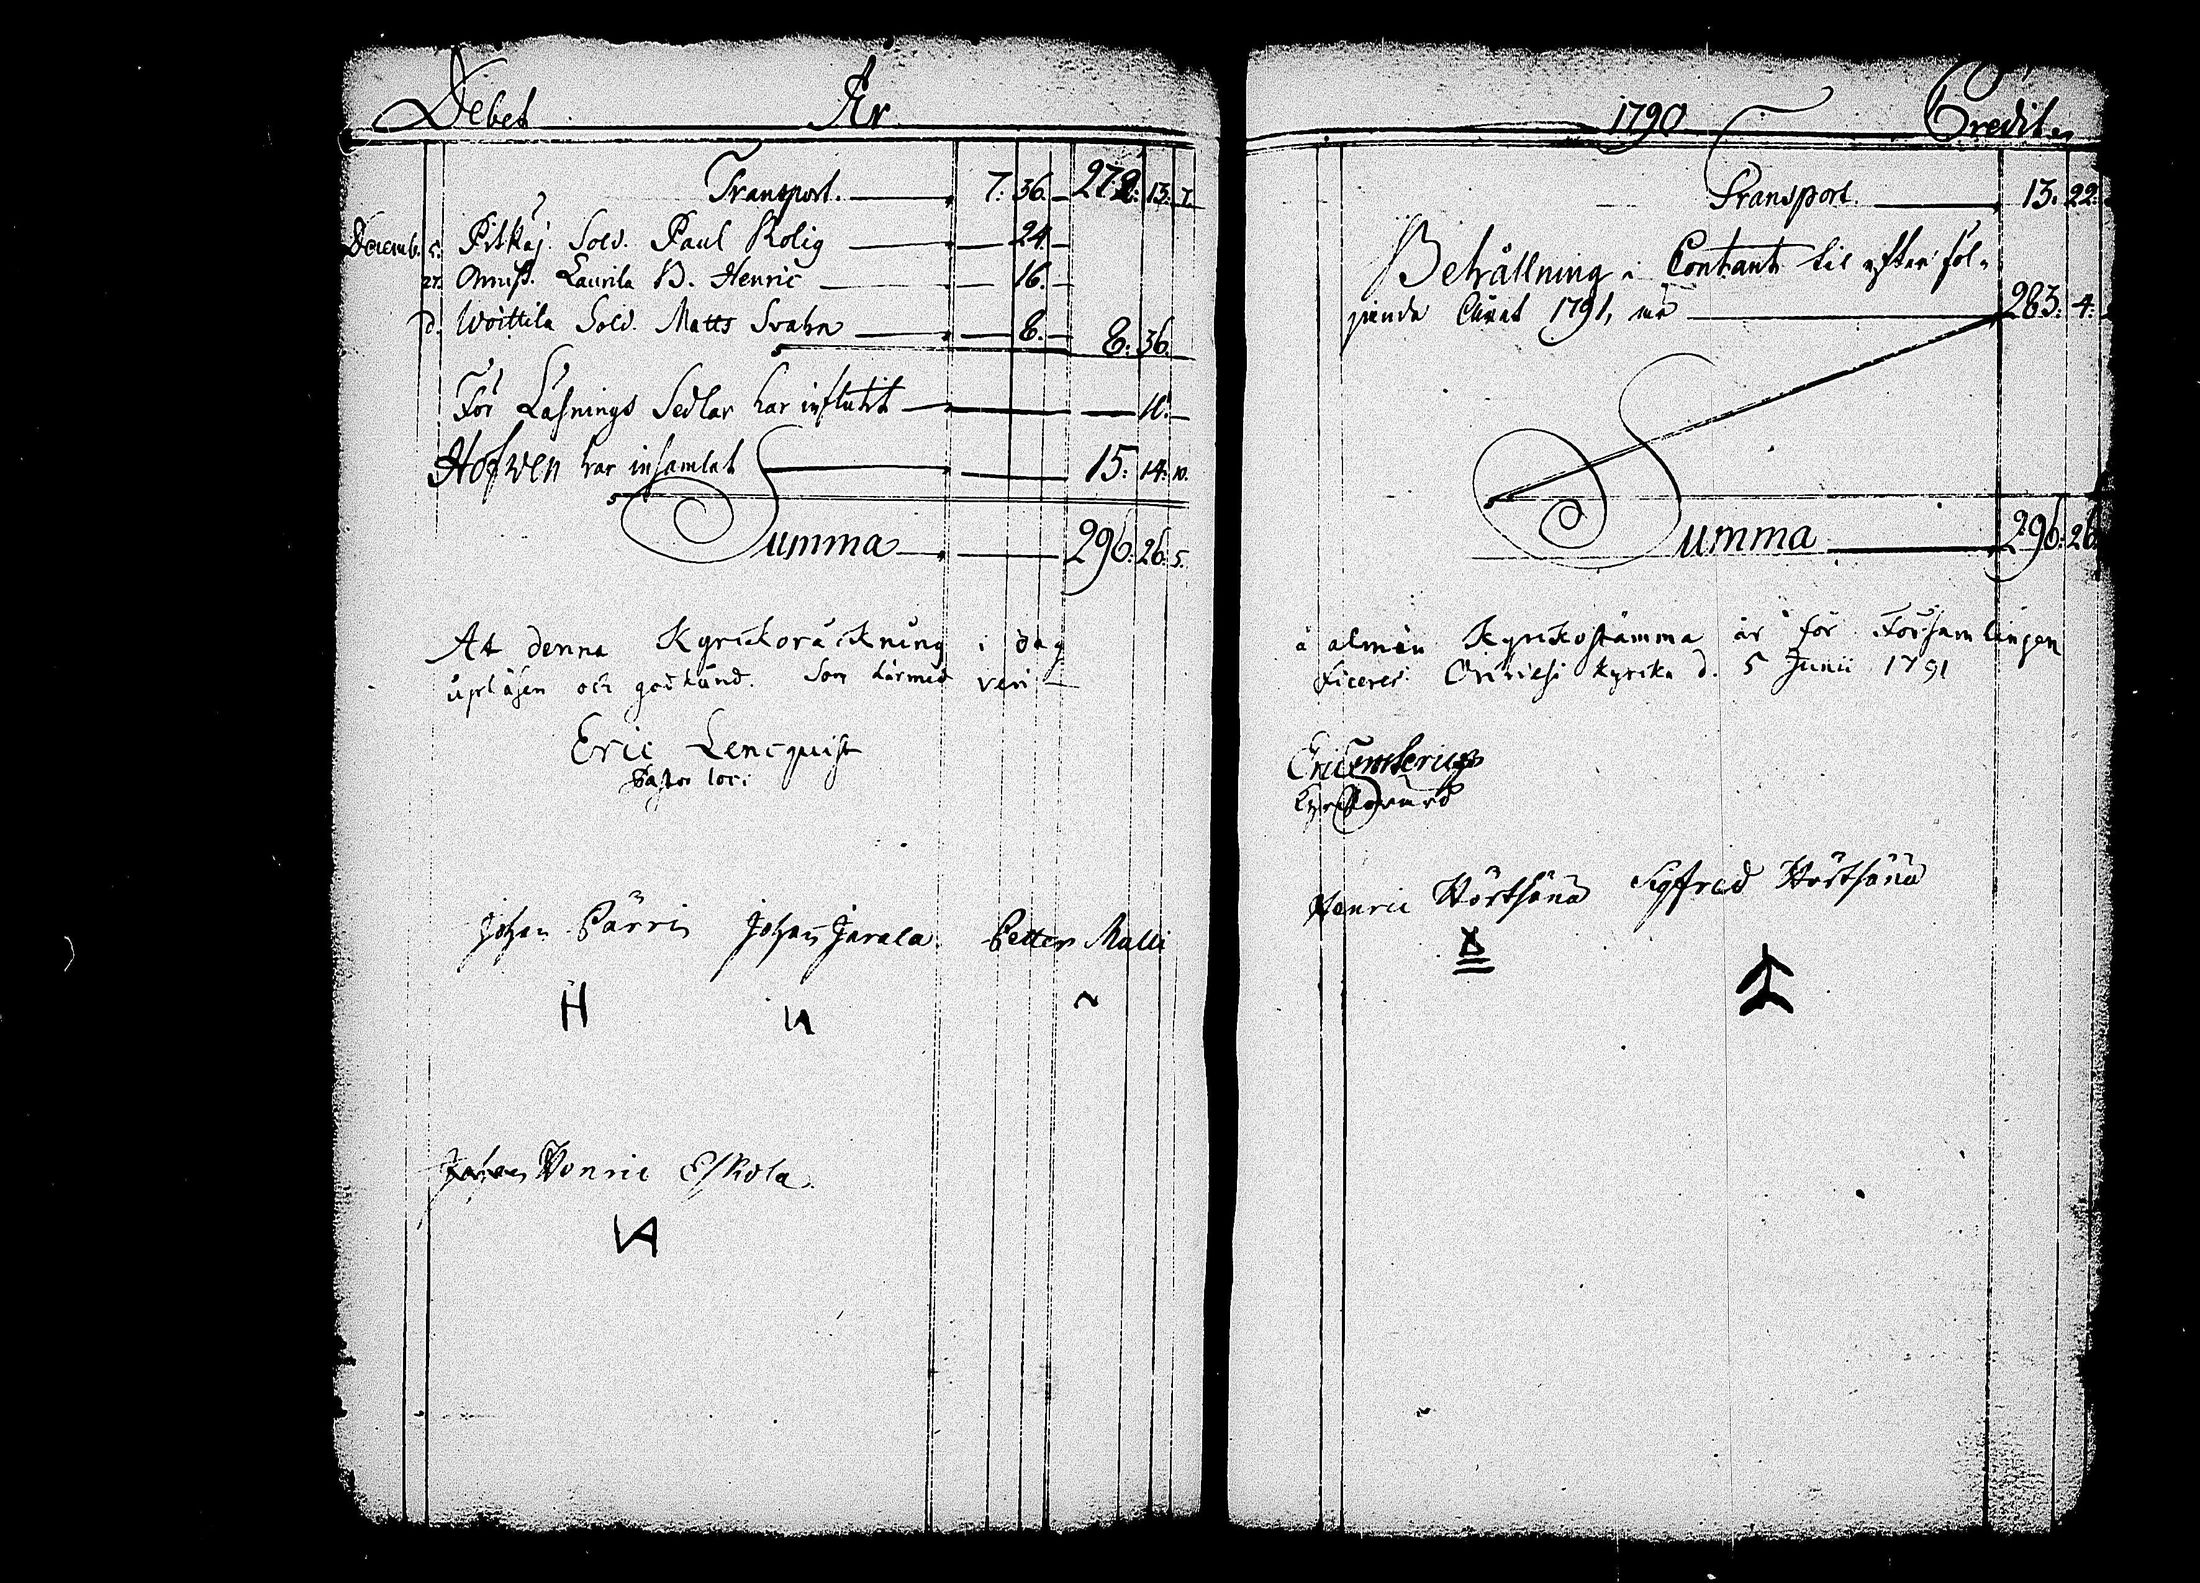 Debet År
Transport. 7. 36. 272. 13. 7.
Decemb. 5. Pitkäj. Sold. Paul Rolig 24.
27. Laurila B. Henric 16.
d. Woittila Sold. Matts Svahn 8. 8. 36.
För Läsnings Sedlar har influtit
Hofwen har insamlat 15. 14. 10.
Summa 296. 26. 5.
At denna Kyrickoräickning i dag
upläsen och godkänd. Som härmed veri
Eric Lencquist
Pastor loci
Johan Pärri Johan Jarala Petter Malli
H
Henric Eskola
1790 Credit
Transport. 13. 22.
Behållning i Contant til efter föl-
jande året 1791, 283. 4.
Summa 296. 26.
å almän Kyrickostämma är för Församlingen
ficeres Orivesi kyrka d. 5 Junii 1791
Eric
Kyrckovärd
Henric Hörtsänä Sigfred Hörtsänä